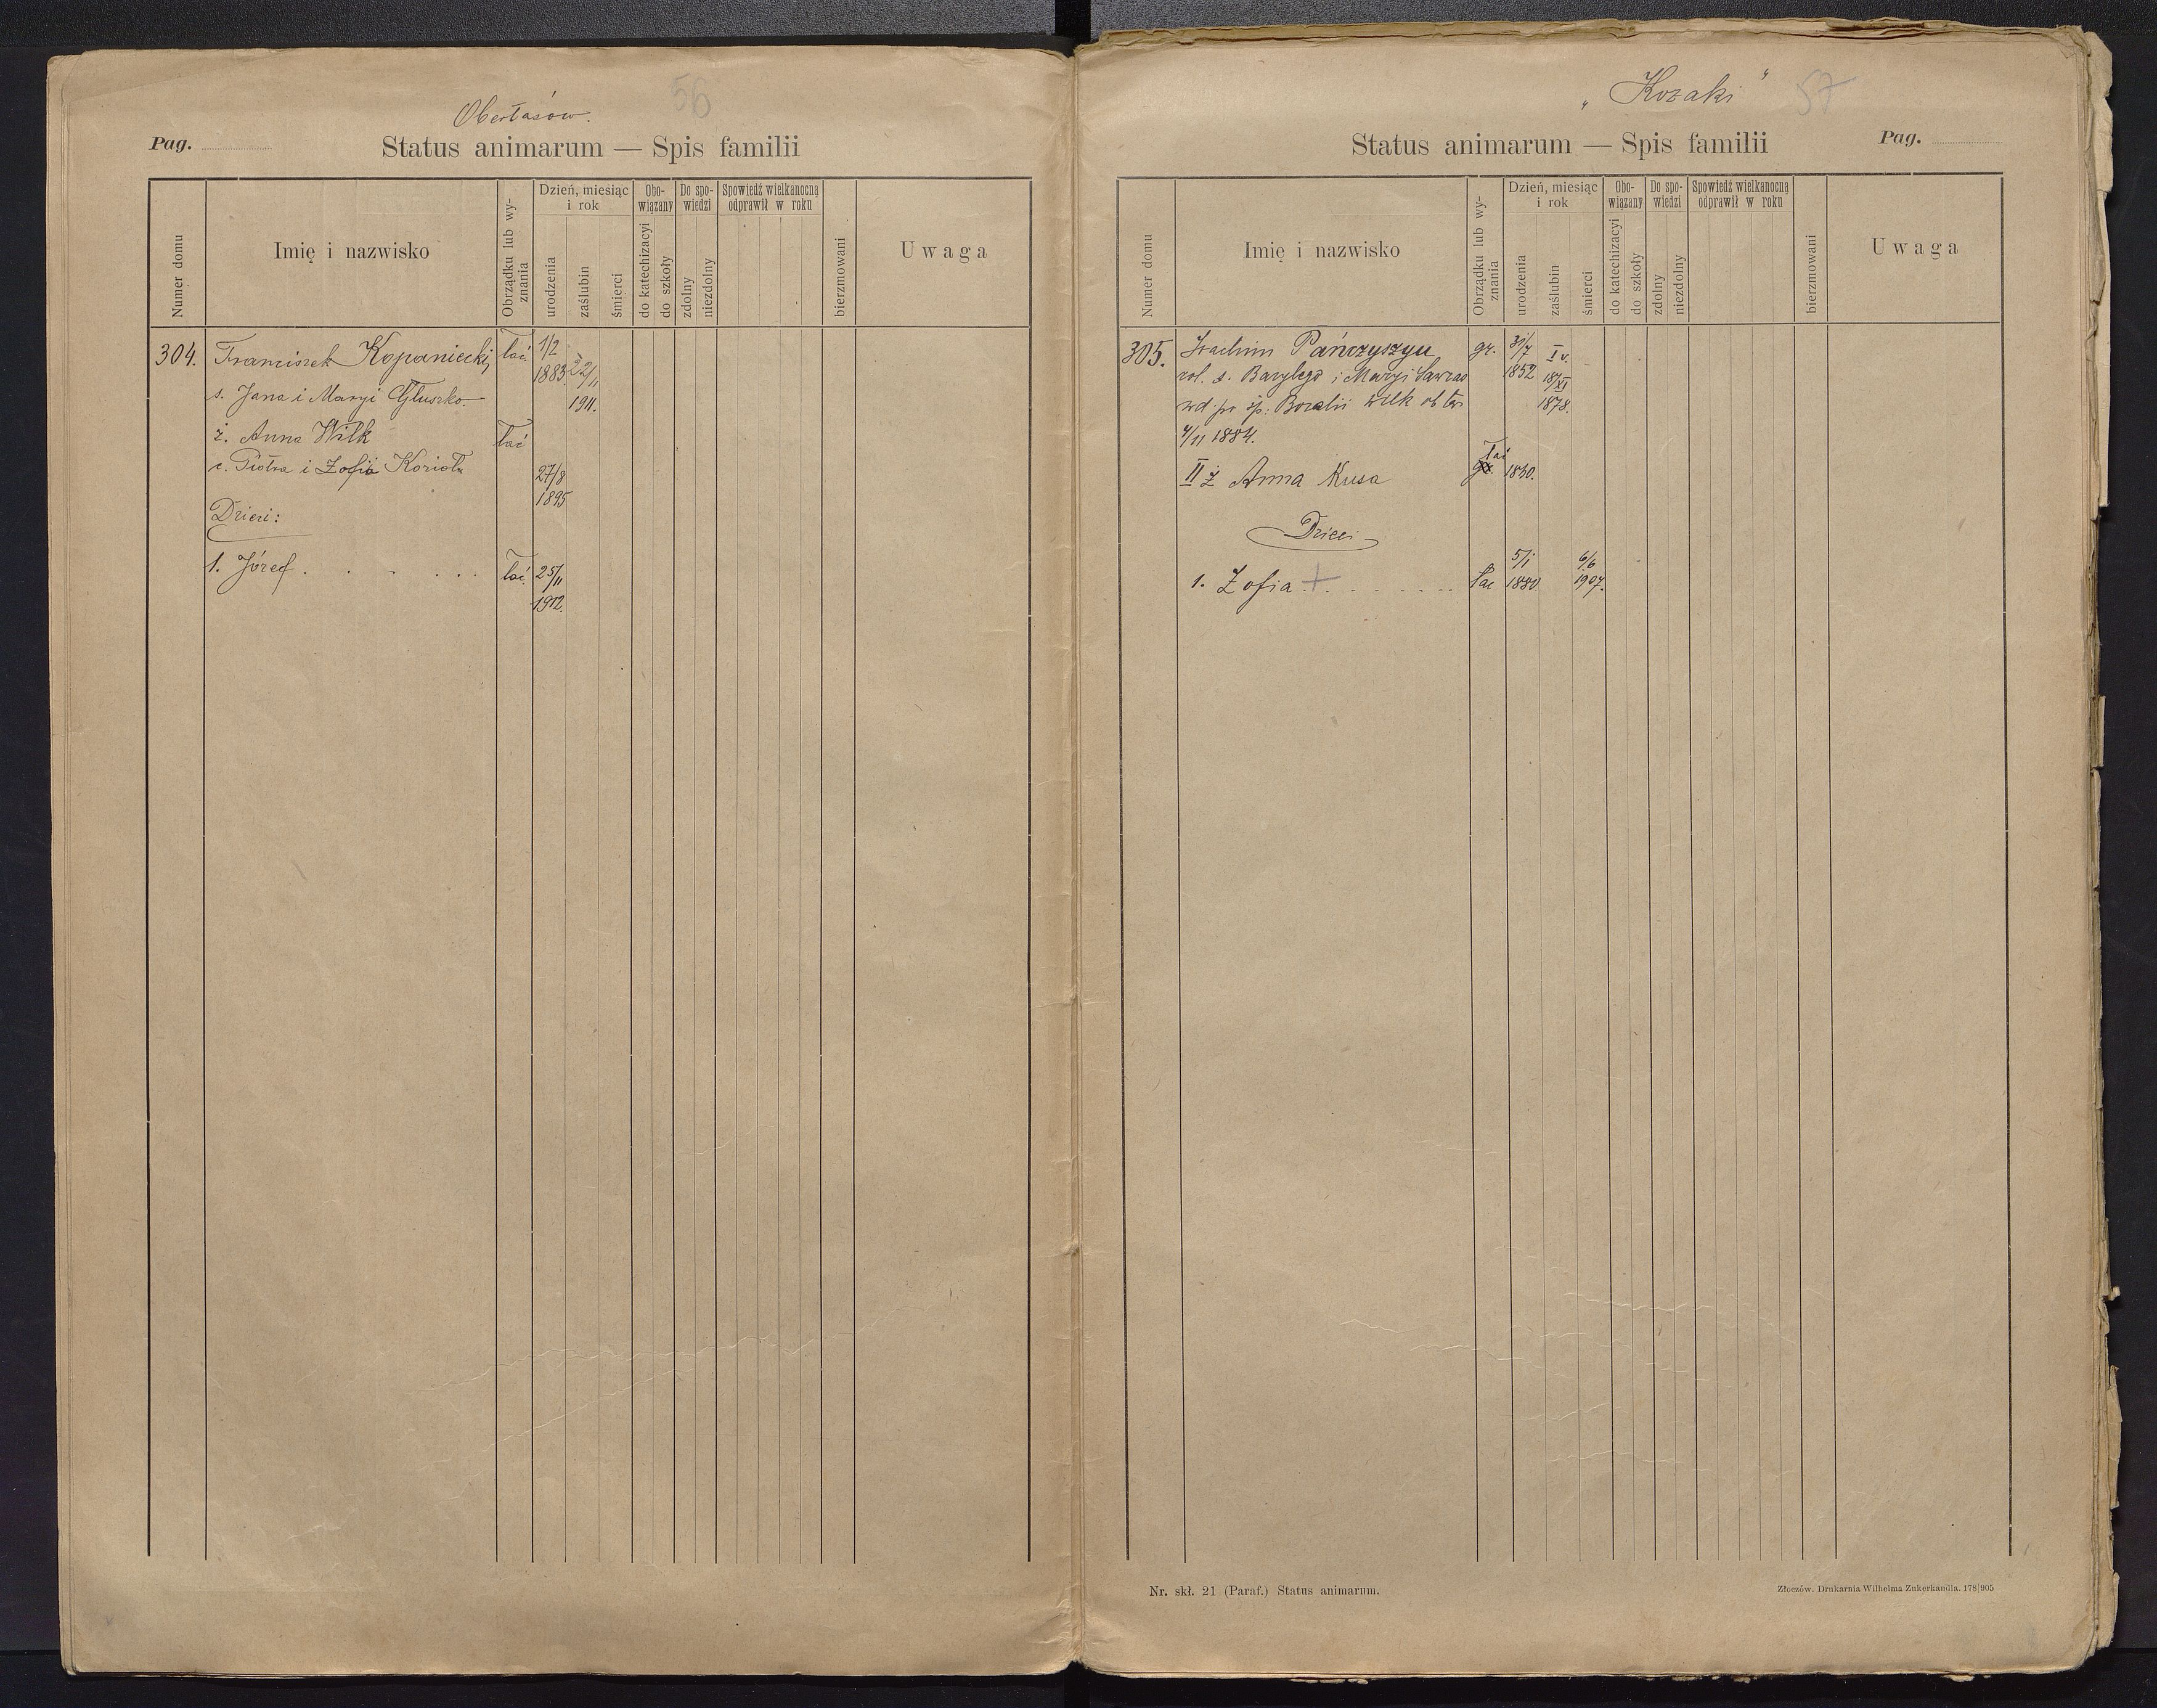 56
Obertasów.
Pag.
Status animarum — Spis familii
Numer domu
Imię i nazwisko
Obrządku lub wyznania
Dzień, miesiąc i rok
urodzenia
zaślubin
śmierci
Obowiązany
do katechizacyi
do szkoły
Do spowiedzi
zdolny
niezdolny
Spowiedź wielkanocną odprawił w roku
bierzmowani
Uwaga
304. Franciszek Kopaniecki łać. 1/2
1883. 22/11
s. Jana i Maryi Głuszko. 1911.
ż. Anna Wilk łać
c. Piotra i Zofii Kozioł 27/8
1895
Dzieci:
1. Józef . . . . . . łać. 25/11
1912.
„Kozaki"
57
Status animarum — Spis familii
Pag.
Numer domu
Imię i nazwisko
Obrządku lub wyznania
Dzień, miesiąc i rok
urodzenia
zaślubin
śmierci
Obowiązany
do katechizacyi
do szkoły
Do spowiedzi
zdolny
niezdolny
Spowiedź wielkanocną odprawił w roku
bierzmowani
Uwaga
305. Joachim Pańczyszyn gr. 31/7 I v.
rol. s. Bazylego i Maryi 1852 18/XI
wd. po śp. Rozalii Wilk 1878.
4/11 1884.
II ż Anna Kusa łać 1830.
Dzieci
1. Zofia + . . . . . . łac 5/1 1880. 6/6 1907.
Nr. skł. 21 (Paraf.) Status animarum.
Złoczów. Drukarnia Wilhelma Zukerkandla. 178|905